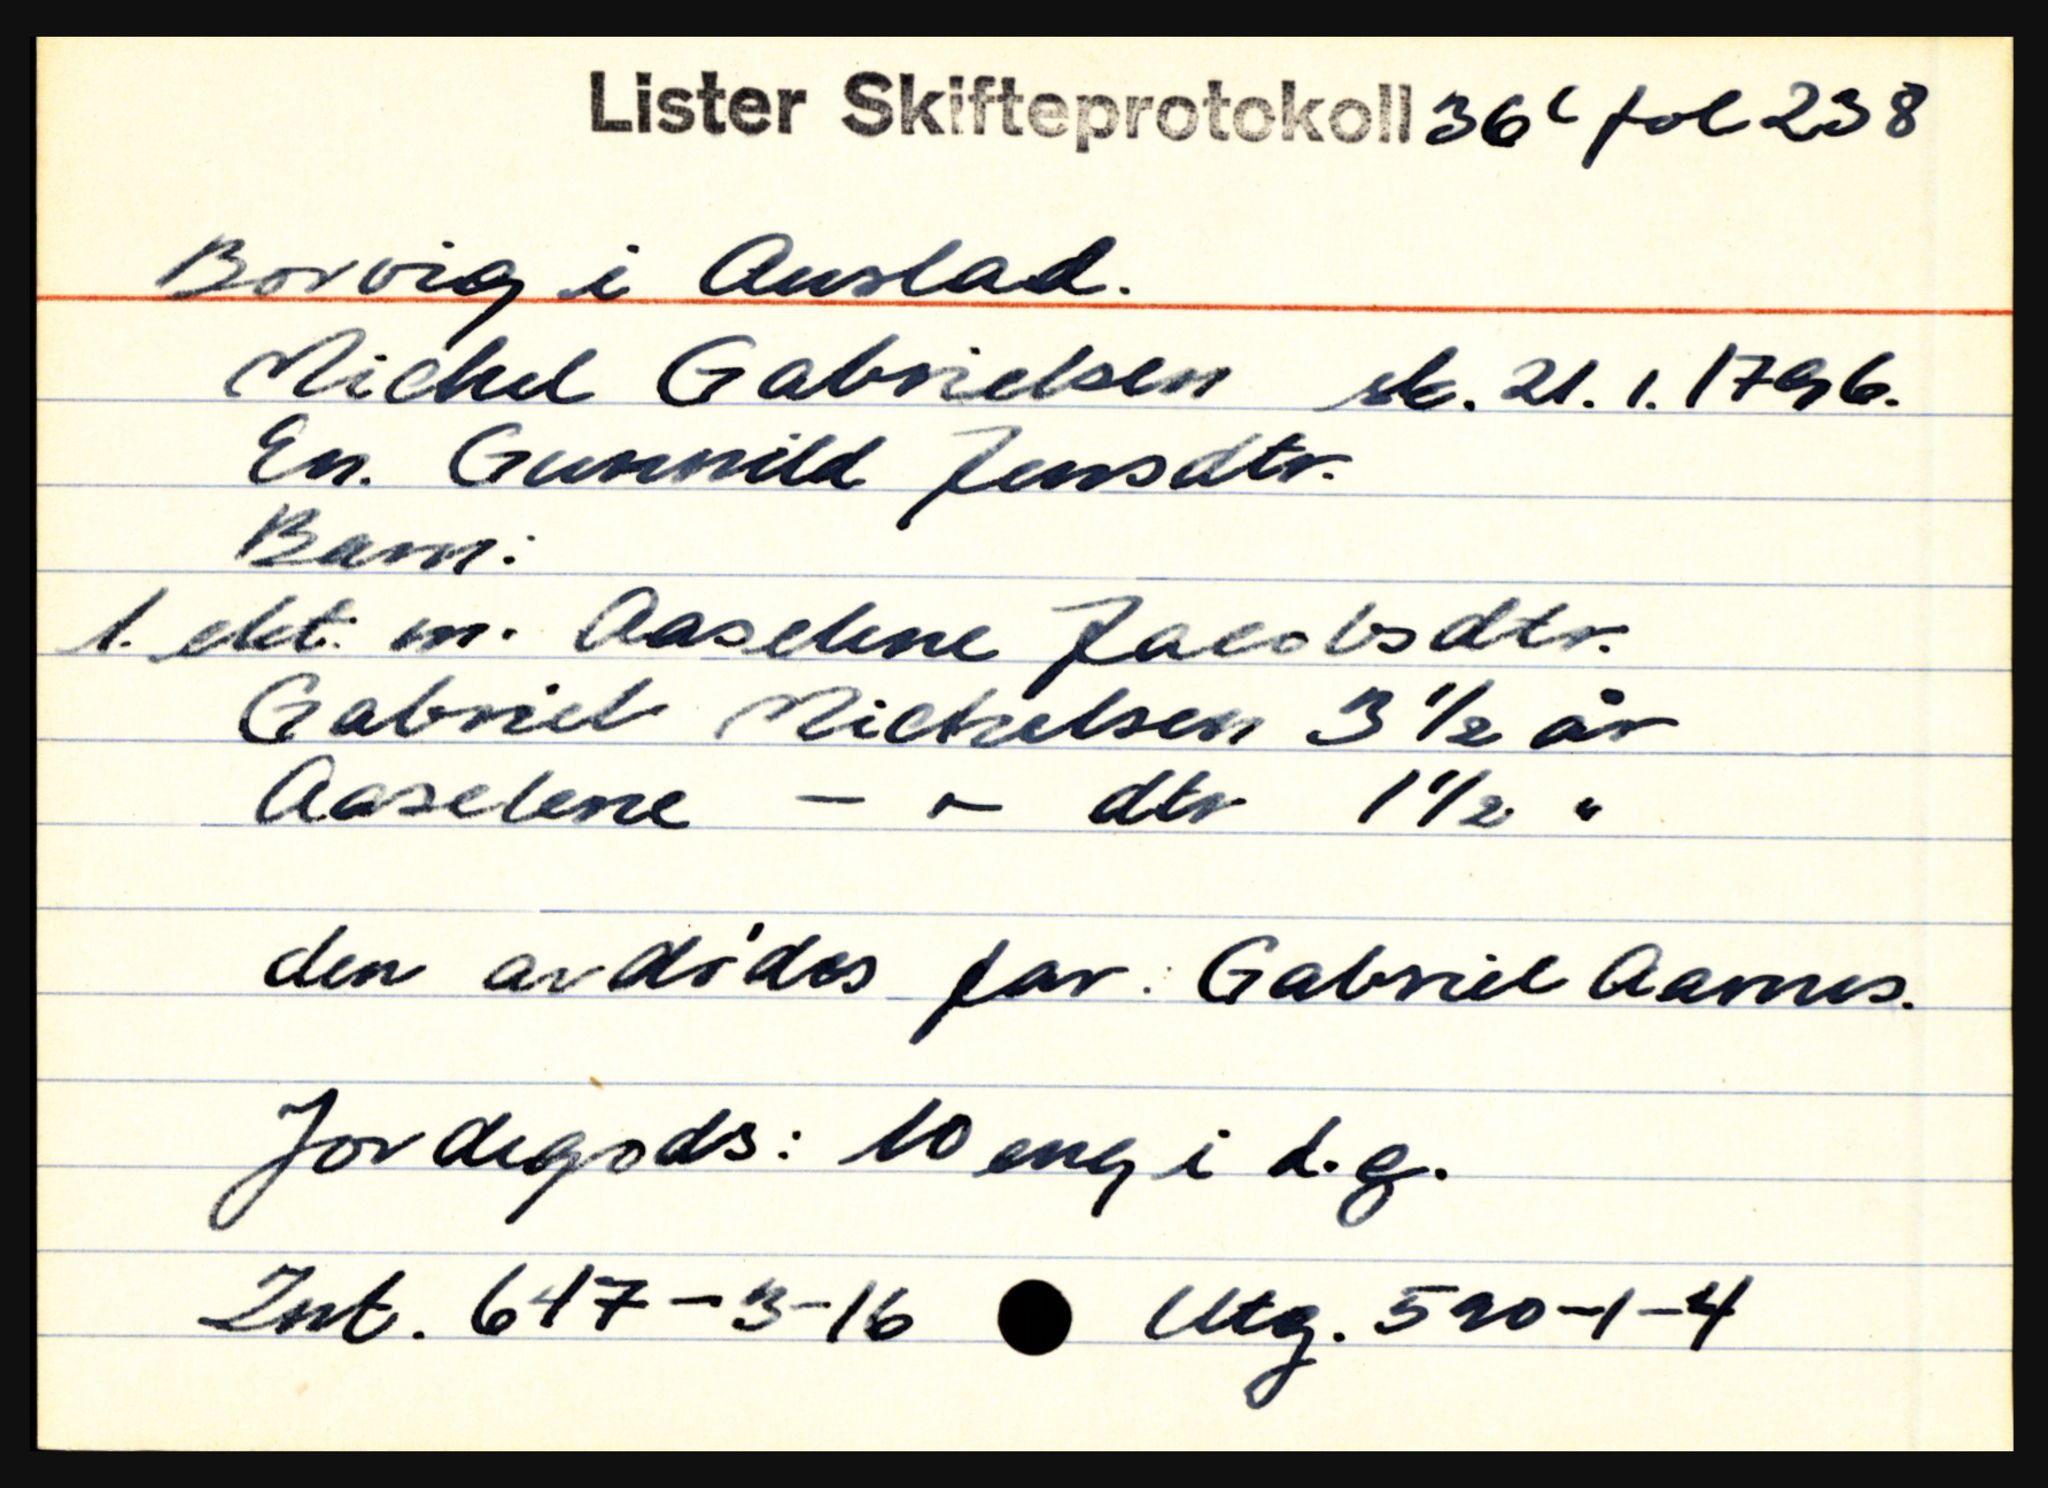 Lister Skifteprotokoll 36c fol 238
Borvig i Austad.
Michel Gabrielsen sk. 21.1.1796.
En. Gunnild Jensdtr.
Barn:
1. ekt. m. Aaselene Jacobsdtr.
Gabriel Michelsen 3 1/2 år
Aaselene - " - dtr 1 1/2 "
den avdødes far: Gabriel Aarnes.
Jordegods: 10 eng i d.g.
Int. 647-3-16 Utg. 590-1-4